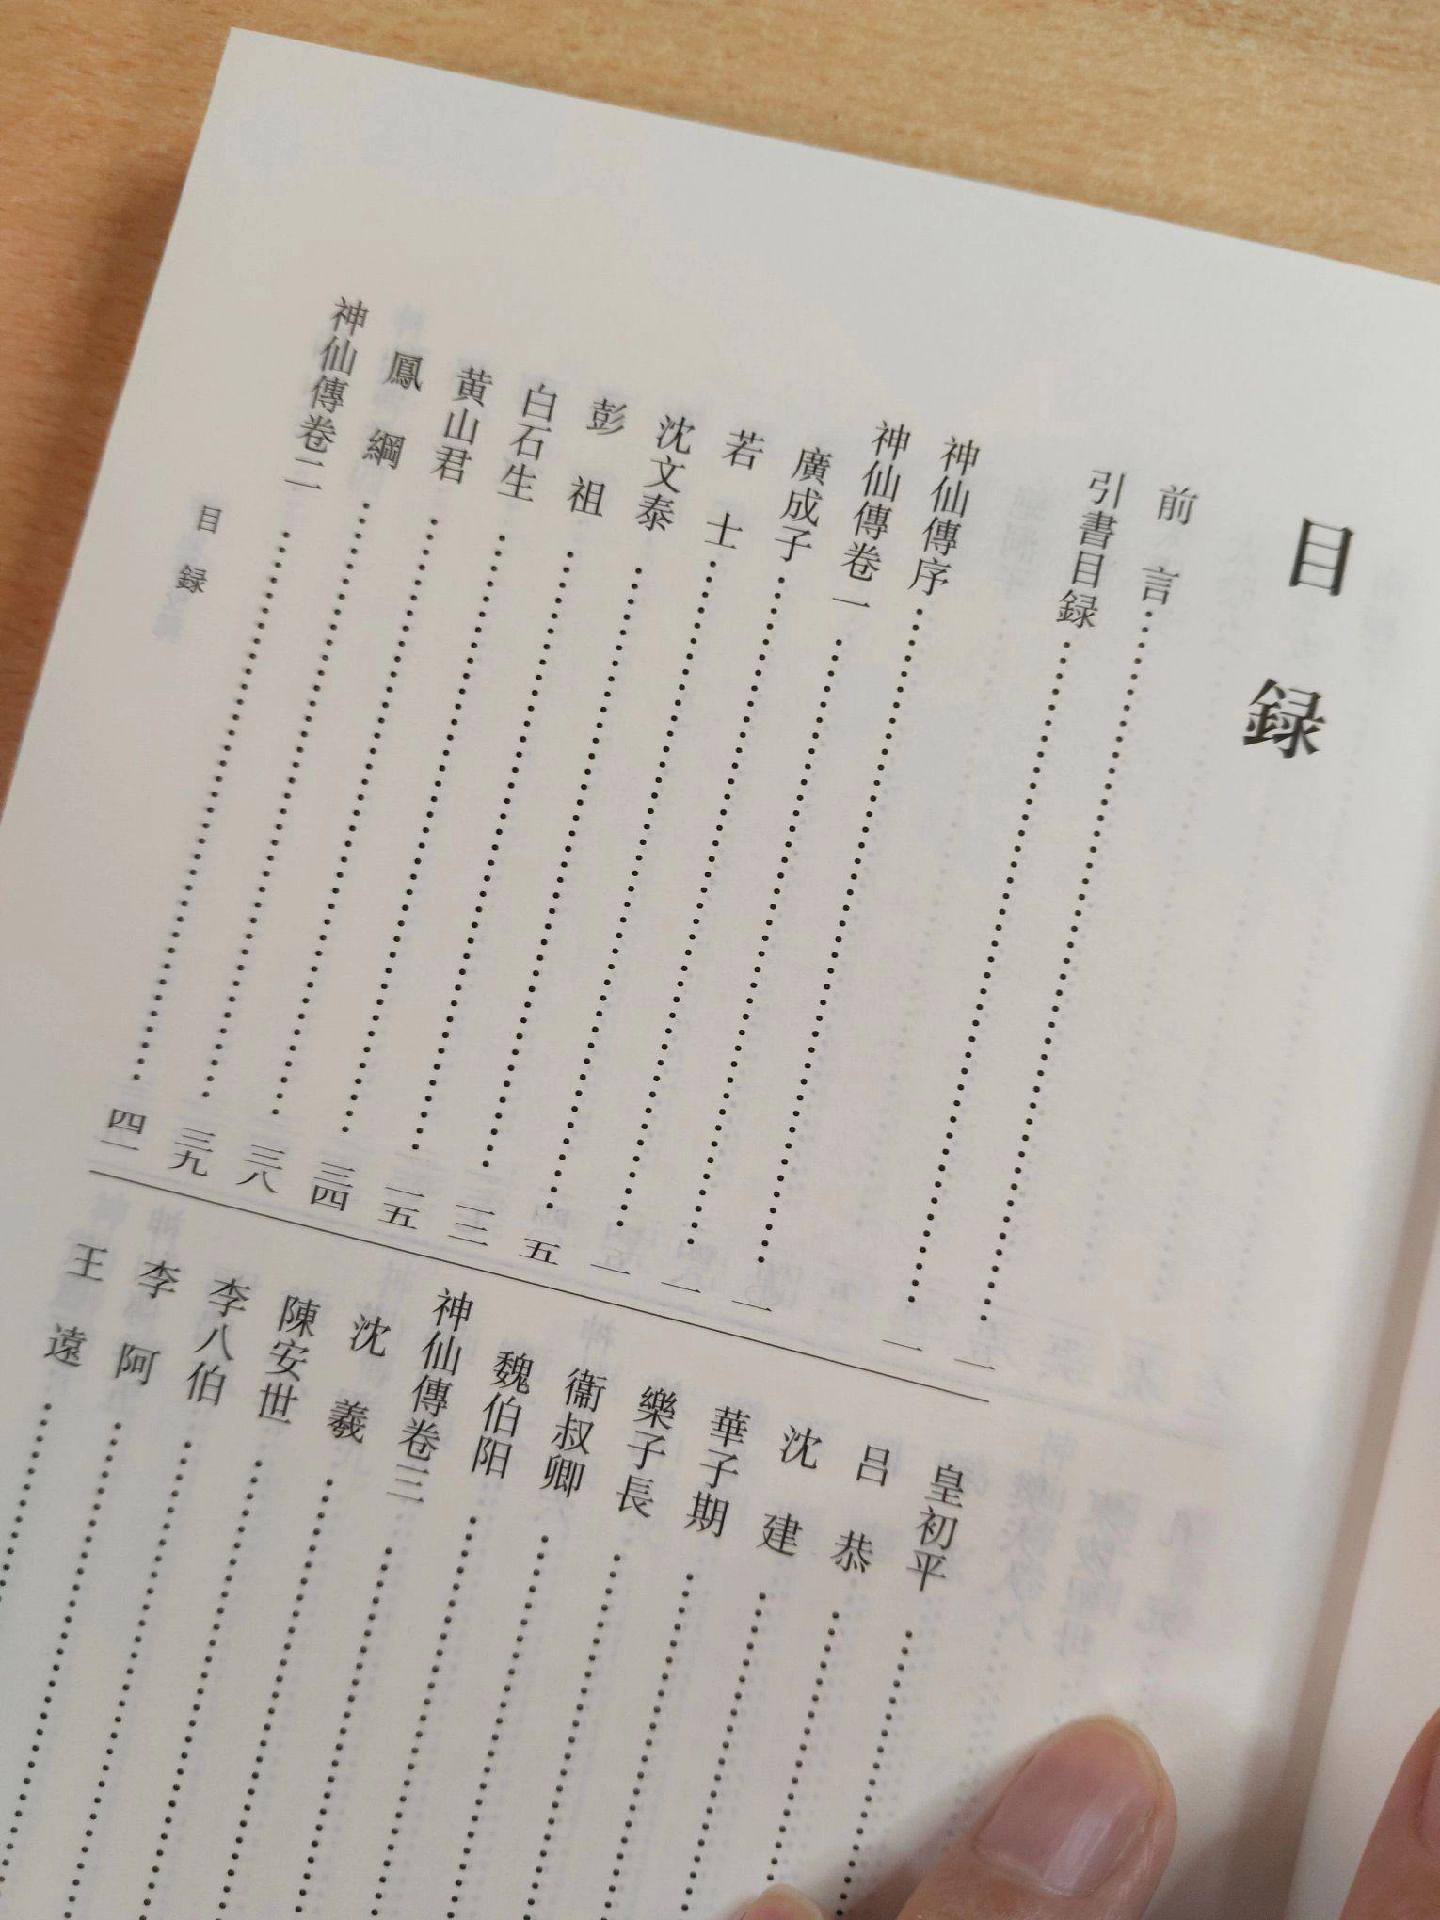 目録
前言……一
引書目録……一
神仙傳序……一
神仙傳卷一……一
廣成子……一
若士……五
沈文泰……一三
彭祖……一五
白石生……三四
黄山君……三八
鳳綱……三九
神仙傳卷二……四一
皇初平
吕恭
沈建
華子期
樂子長
衞叔卿
魏伯阳
神仙傳卷三
沈羲
陳安世
李八伯
李阿
王遠
目録